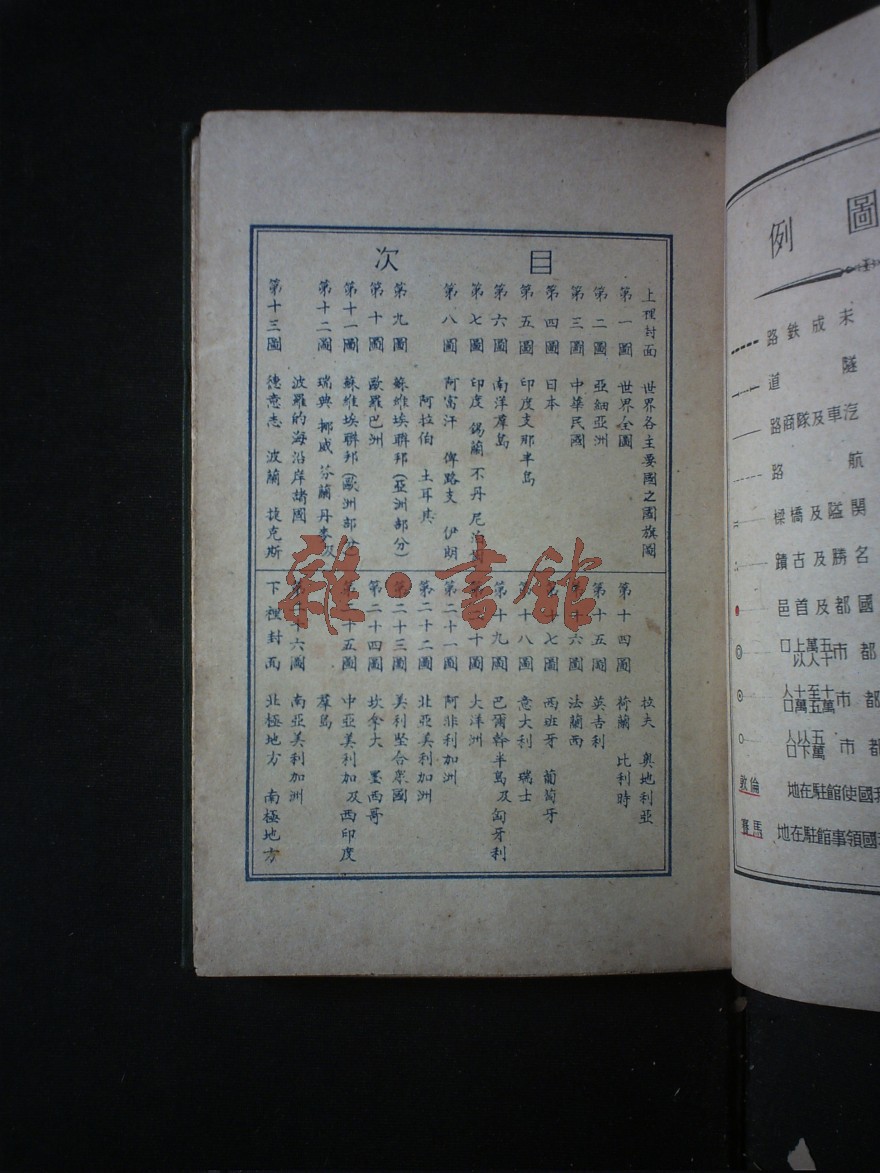 目次
上裡封面 世界各主要國之國旗圖
第一圖 世界全圖
第二圖 亞細亞洲
第三圖 中華民國
第四圖 日本
第五圖 印度支那半島
第六圖 南洋羣島
第七圖 印度 錫蘭 不丹 尼泊爾
第八圖 阿富汗 俾路支 伊朗
阿拉伯 土耳其
第九圖 蘇維埃聯邦(亞洲部分)
第十圖 歐羅巴洲
第十一圖 蘇維埃聯邦(歐洲部分)
第十二圖 瑞典 挪威 芬蘭 丹麥及
波羅的海沿岸諸國
第十三圖 德意志 波蘭 捷克斯
拉夫 奧地利亞
第十四圖 荷蘭 比利時
第十五圖 英吉利
第十六圖 法蘭西
第十七圖 西班牙 葡萄牙
第十八圖 意大利 瑞士
第十九圖 巴爾幹半島及匈牙利
第二十圖 大洋洲
第二十一圖 阿非利加洲
第二十二圖 北亞美利加洲
第二十三圖 美利堅合衆國
第二十四圖 坎拿大 墨西哥
第二十五圖 中亞美利加及西印度
羣島
第二十六圖 南亞美利加洲
下裡封面 北極地方 南極地方
雜·書館
圖例
未成鉄路
隧道
汽車及隊商路
航路
関隘及橋樑
名勝及古蹟
國都及首邑
都市五萬人以上口
都市
都市
倫敦
國使館駐在地
馬賽
國領事館駐在地